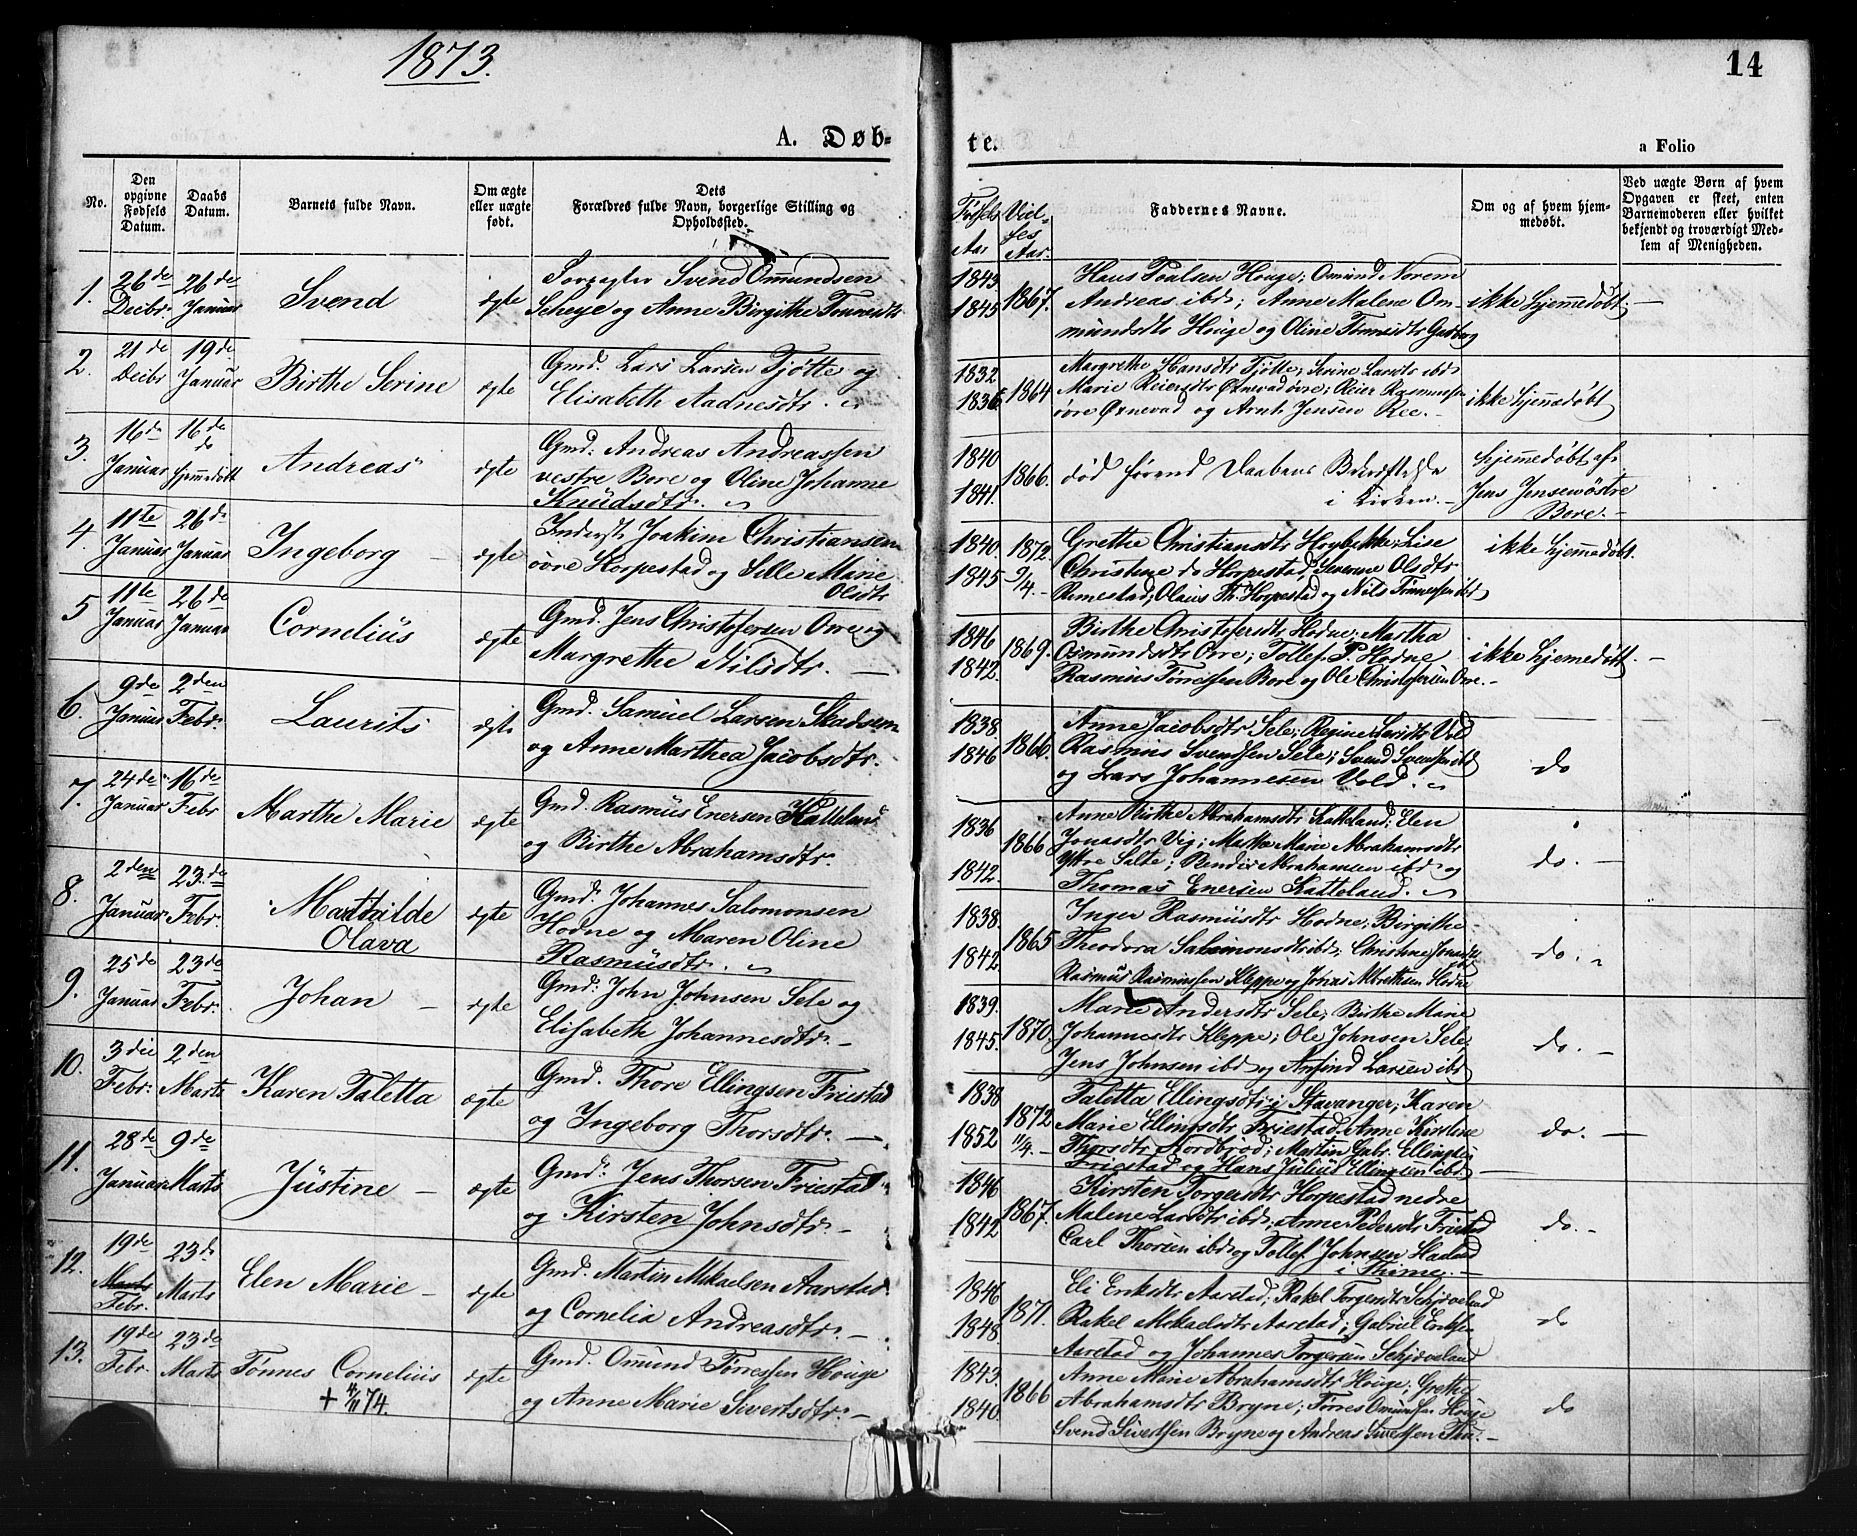 1873.
14
A. Døb-
te.
a Folio
No.
Den opgivne Fødsels Datum.
Daabs Datum.
Barnets fulde Navn.
Om ægte eller uægte født.
Dets Forældres fulde Navn, borgerlige Stilling og Opholdssted.
Fødsels Aar
Viel-ses Aar.
Faddernes Navne.
Om og af hvem hjem-medøbt.
Ved uægte Børn af hvem Opgaven er skeet, enten Barnemoderen eller hvilket bekjendt og troværdigt Med-lem af Menigheden.
1.
26de Decbr.
26de Januar
Svend
ægte
Svend Omundsen
og Anne Birgithe Tønnesdtr
1843
1845
1867.
Hans Poulsen Houge; Omund Norem
Andreas ibd; Anne Malene Om-
mundsdtr Houge og Oline Tønnesdtr
ikke hjemmedøbt. —
2.
21de Decbr
19de Januar
Birthe Serine
ægte
Gmd. Lars Larsen Tjøtte og
Elisabeth Aadnesdtr.
1832
1836
1864
Margrethe Hansdtr Tjøtte; Serine Larsdtr ibd
Marie Reiersdtr Øxnevad øvre; Reier Rasmussen
øvre Øxnevad og Arnt Jensen Ree. —
ikke hjemmedøbt
3.
16de Januar
16de do hjemmedøbt
Andreas
ægte
Gmd: Andreas Andreassen
vestre Bore og Oline Johanne
Knudsdtr.
1840
1841.
1866.
død førend Daabens Bekræftelse
i Kirken. —
hjemmedøbt af
Jens Jensen østre
Bore. —
4.
11te Januar
26de Januar
Ingeborg —
ægte
Inderst Joakim Christiansen
øvre Horpestad og Sille Marie
Olsdtr
1840.
1845
1872. 9/4. —
Grethe Christiansdtr; Lise
Christine do Horpestad, Severine Olsdtr
Rimestad; Olaus Th. Horpestad og Nils Tønnessen ibd
ikke hjemmedøbt.
5
11te Januar
26de Januar
Cornelius
ægte
Gmd. Jens Christofersen Orre og
Margrethe Nilsdtr. —
1846
1842.
1869.
Birthe Christofersdtr Hodne; Martha
Osmundsdtr Orre; Tollef P. Hodne
Rasmus Tørressen Bore og Ole Christofersen Orre. —
ikke hjemmedøbt. —
6.
9de Januar
2den Febr.
Laurits
ægte
Gmd. Samuel Larsen Skadsem
og Anne Marthea Jacobsdtr.
1838.
1846
1866.
Anne Jacobsdtr Sele; Regine Larsdtr Vold
Rasmus Svendsen Sele; Svend Svendsen ibd
og Lars Johannesen Vold.
do
7.
24de Januar
16de Febr
Marthe Marie
ægte
Gmd. Rasmus Enersen Katteland
og Birthe Abrahamsdtr.
1836
1842.
1866
Anne Birthe Abrahamsdtr Katteland; Elen
Jonasdtr Vig; Marthe Marie Abrahamsdtr
Ytre Salte; Bendix Abrahamsen ibd og
Thomas Enersen Katteland.
do. —
8.
2den Januar
23de Febr.
Mathilde
Olava
ægte
Gmd. Johannes Salomonsen
Hodne og Maren Oline
Rasmusdtr.
1838.
1842
1865
Inger Rasmusdtr Hodne; Birgithe
Theodora Salomonsdtr ibd; Christine Jonasdtr
Rasmus Rasmussen Kleppe og Jonas Hodne
do.
9.
25de Januar
23de Febr.
Johan —
ægte
Gmd: John Johnsen Sele og
Elisabeth Johannesdtr. —
1839.
1845.
1870.
Marie Andersdtr Sele; Birthe Marie
Johannesdtr Kleppe; Ole Johnsen Sele
Jens Johnsen ibd og Larsen ibd
do. —
10.
3die Febr.
2den Marts
Karen Taletta
ægte
Gmd. Thore Ellingsen Friestad
og Ingeborg Thorsdtr. —
1838
1852
1872 11/4. —
Taletta Ellingsdtr i Stavanger; Karen
Marie Ellingsdtr Friestad. Anne Kirstine
Thorsdtr Nordbraad; Martin Gabr. Ellingsen
Friestad og Hans Julius Ellingsen ibd —
do. —
11.
28de Januar
9de Marts
Justine —
ægte
Gmd. Jens Thorsen Friestad
og Kirsten Johnsdtr. —
1846
1842
1867.
Kirsten Torgersdtr Horpestad nedre
Malene Larsdtr ibd; Anne Pedersdtr Friestad
Carl Thorsen ibd og Tollef Johnsen Haaland
i Thime. —
do. —
12.
19de Marts Febr.
23de Marts
Elen Marie —
ægte
Gmd. Martin Mikaelsen Aarstad
og Cornelia Andreasdtr. —
1846
1848
1871.
Eli Eriksdtr Aarstad; Rakel Torgersdtr Schjøveland
Rakel Mikaelsdtr Aarstad; Gabriel Eriksen
Aarstad og Johannes Torgersen Schjøveland
do
13.
19de Febr.
23de Marts
Tønnes Cornelius
+ 4/11 74.
ægte
Gmd. Omund Tørressen Houge
og Anne Marie Sivertsdtr. —
1843.
1840.
1866
Anne Marie Abrahamsdtr Houge; Grethe
Abrahamsdtr Bryne; Tørres Omundsen Houge
Svend Sivertsen Bryne og Andreas Sivertsen Thu. —
do